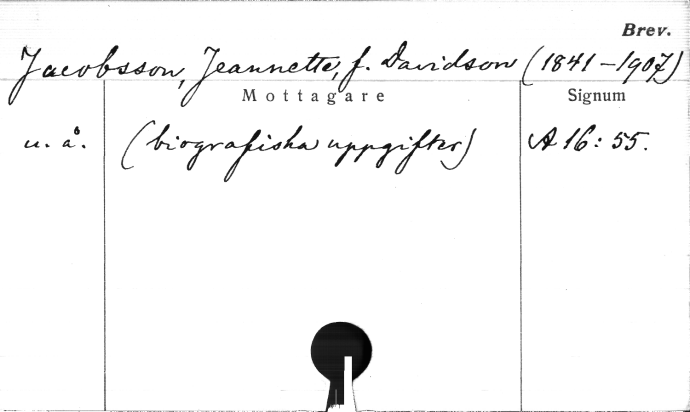 Brev.
Jacobsson, Jeannette, f. Davidson (1841–1907)
Mottagare Signum
u. å. (biografiska uppgifter) A 16: 55.